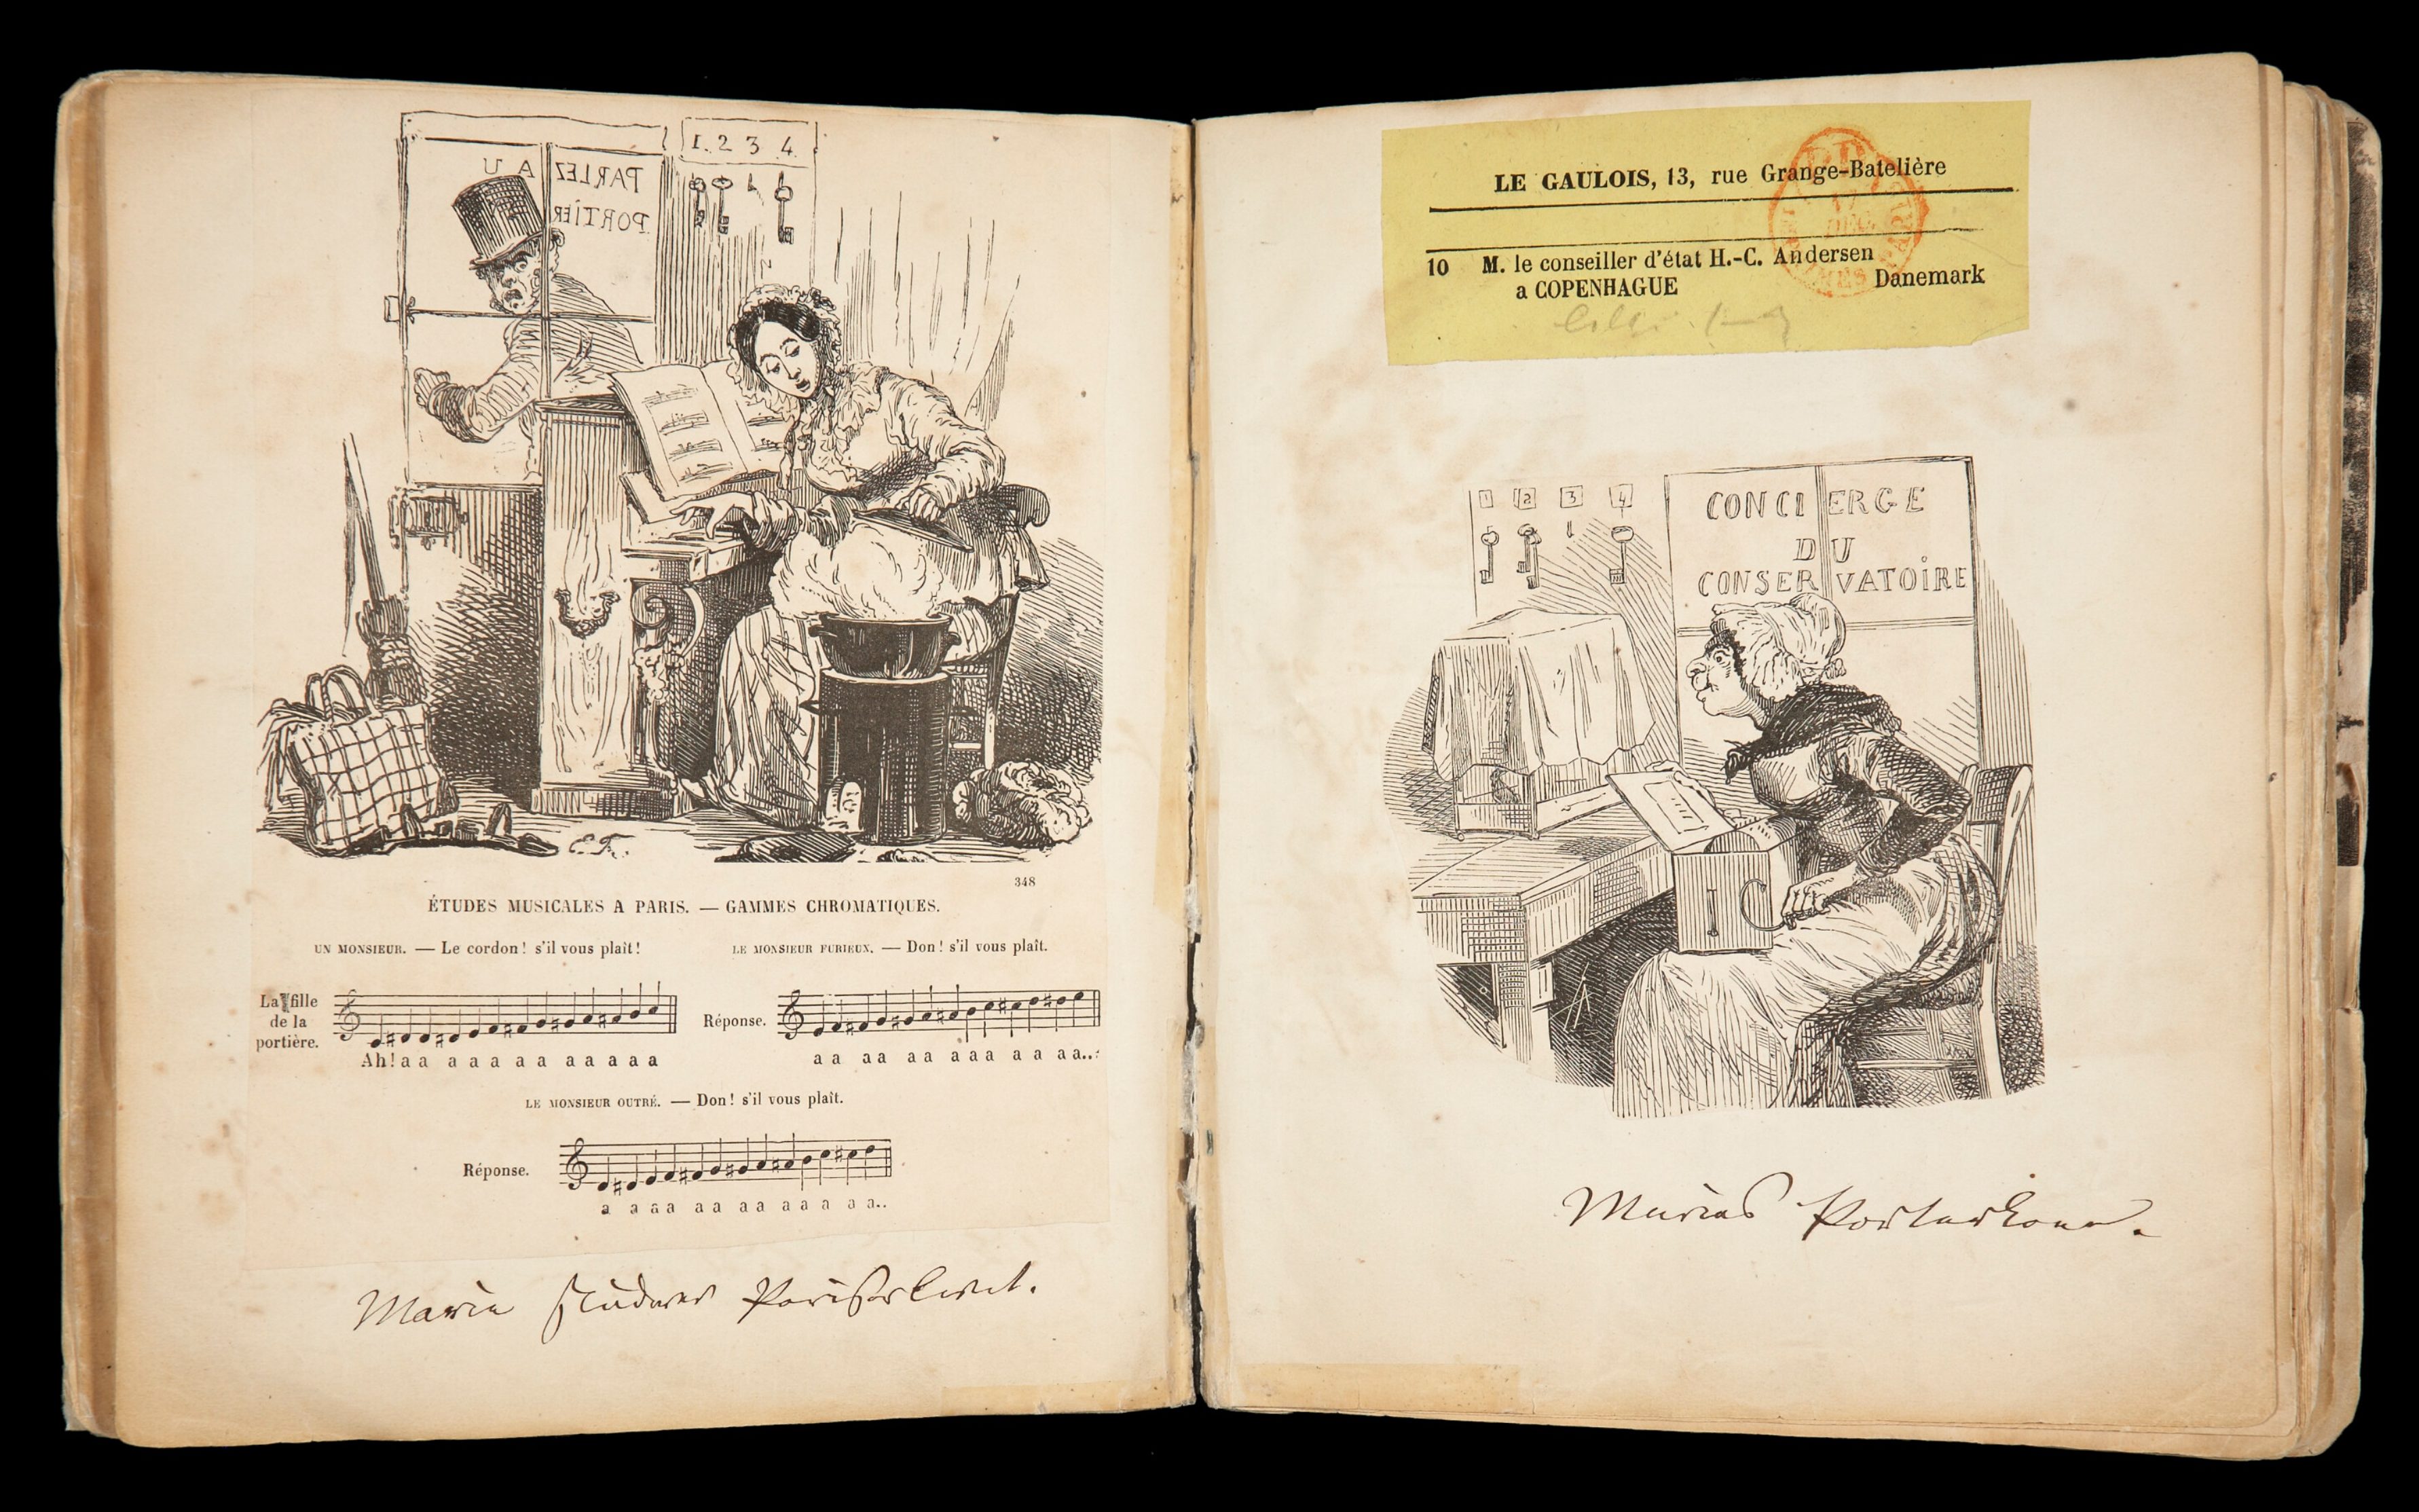 1. 2 3 4.
PARLEZ AU
PORTIER
348
ÉTUDES MUSICALES A PARIS. — GAMMES CHROMATIQUES.
UN MONSIEUR. — Le cordon! s'il vous plaît!
LE MONSIEUR FURIEUX. — Don! s'il vous plaît.
La fille
de la
portière.
Ah! a a a a a a a a a a a a
Réponse.
a a a a a a a a a a a a a..
LE MONSIEUR OUTRÉ. — Don! s'il vous plaît.
Réponse.
a a a a a a a a a a a a a..
Marie studerer
LE GAULOIS, 13, rue Grange-Batelière
10 M. le conseiller d'état H.-C. Andersen
a COPENHAGUE Danemark
1 2 3 4
CONCIERGE
DU
CONSERVATOIRE
Maries Portnerkone.